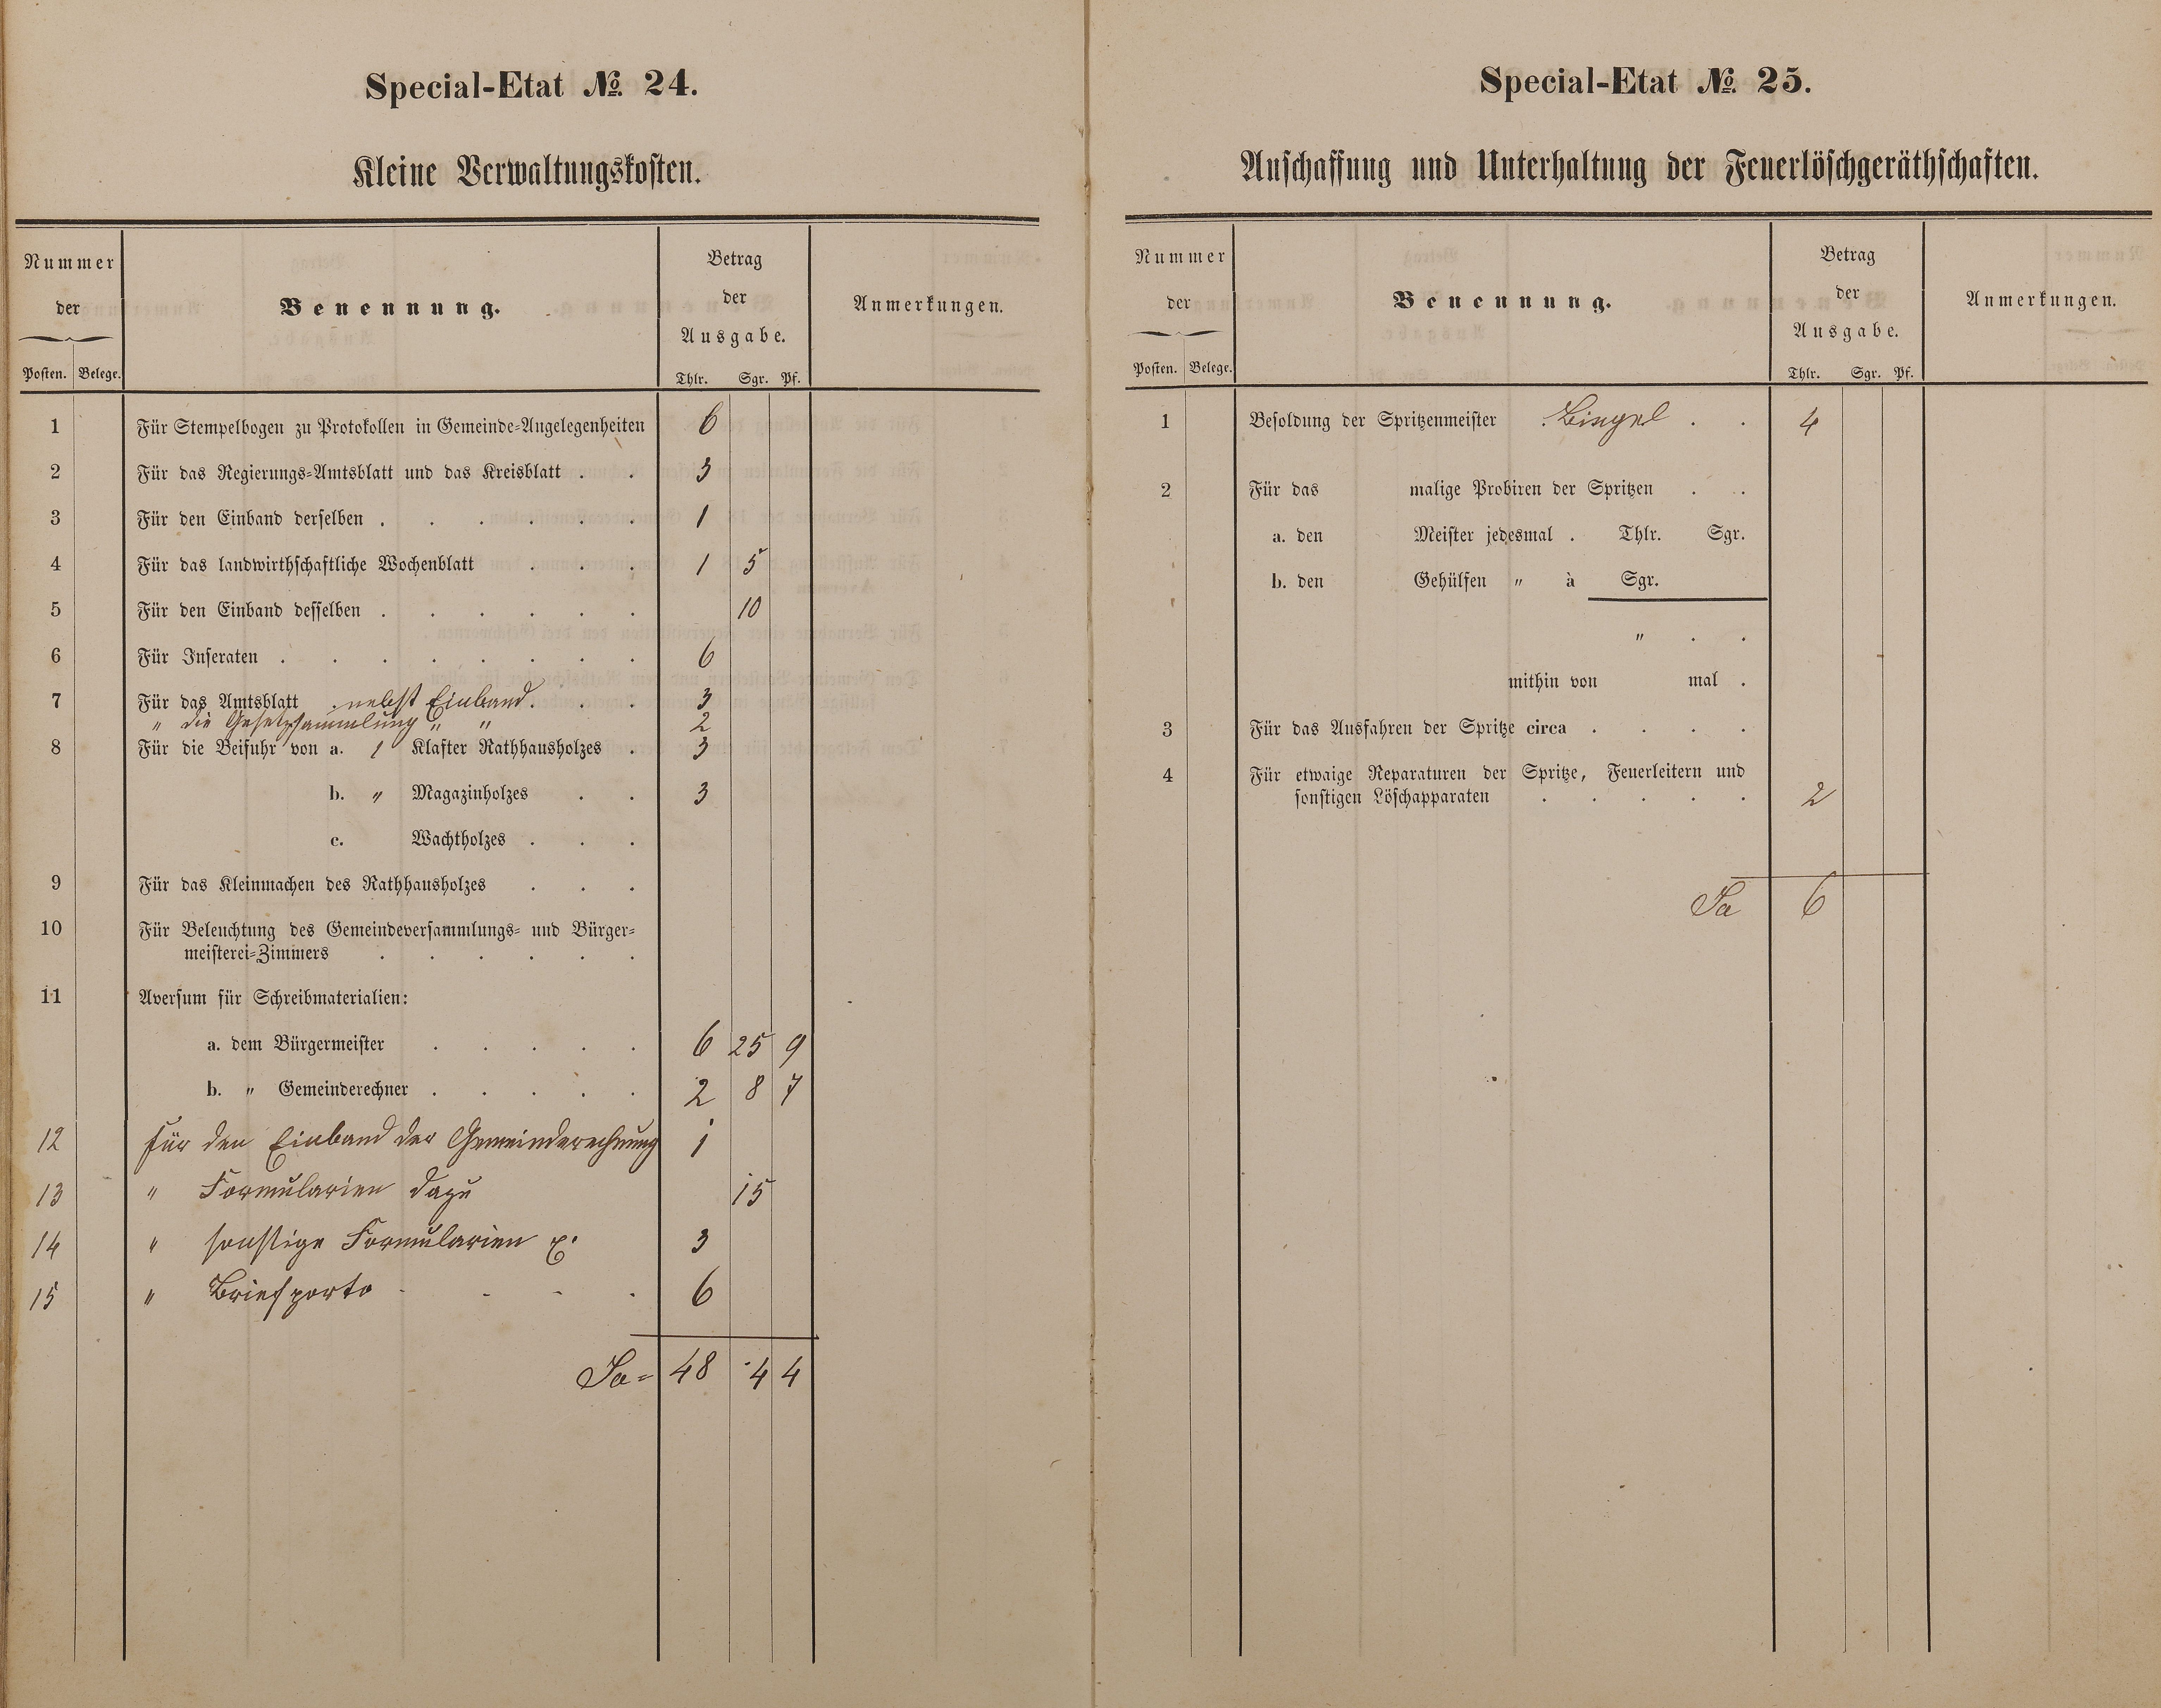 Special-Etat № 24.
Kleine Verwaltungskosten.
Nummer der
Posten. Belege.
Benennung.
Betrag der Ausgabe.
Thlr. Sgr. Pf.
Anmerkungen.
1 Für Stempelbogen zu Protokollen in Gemeinde-Angelegenheiten 6
2 Für das Regierungs-Amtsblatt und das Kreisblatt . . 3
3 Für den Einband derselben . . . . . . 1
4 Für das landwirthschaftliche Wochenblatt . . . 1 5
5 Für den Einband desselben . . . . . . 10
6 Für Inseraten . . . . . . . . 6
7 Für das Amtsblatt . nebst Einband . . . 3
" die Gesetzsammlung " " 2
8 Für die Beifuhr von a. 1 Klafter Rathhausholzes . 3
b. " Magazinholzes . . 3
c. Wachtholzes . . .
9 Für das Kleinmachen des Rathhausholzes . . .
10 Für Beleuchtung des Gemeindeversammlungs- und Bürger-
meisterei-Zimmers . . . . . .
11 Aversum für Schreibmaterialien:
a. dem Bürgermeister . . . . . 6 25 9
b. " Gemeinderechner . . . . . 2 8 7
12 für den Einband der Gemeinderechnung 1
13 " Formularien dazu 15
14 " sonstige Formularien 3
15 " Briefporto - - - . 6
Sa = 48 4 4
Special-Etat № 25.
Anschaffung und Unterhaltung der Feuerlöschgeräthschaften.
Nummer der
Posten. Belege.
Benennung.
Betrag der Ausgabe.
Thlr. Sgr. Pf.
Anmerkungen.
1 Besoldung der Spritzenmeister . Bingel . . 4
2 Für das malige Probiren der Spritzen . .
a. den Meister jedesmal . Thlr. Sgr.
b. den Gehülfen " à Sgr.
" . .
mithin von mal .
3 Für das Ausfahren der Spritze circa . . . .
4 Für etwaige Reparaturen der Spritze, Feuerleitern und
sonstigen Löschapparaten . . . . . 2
Sa 6